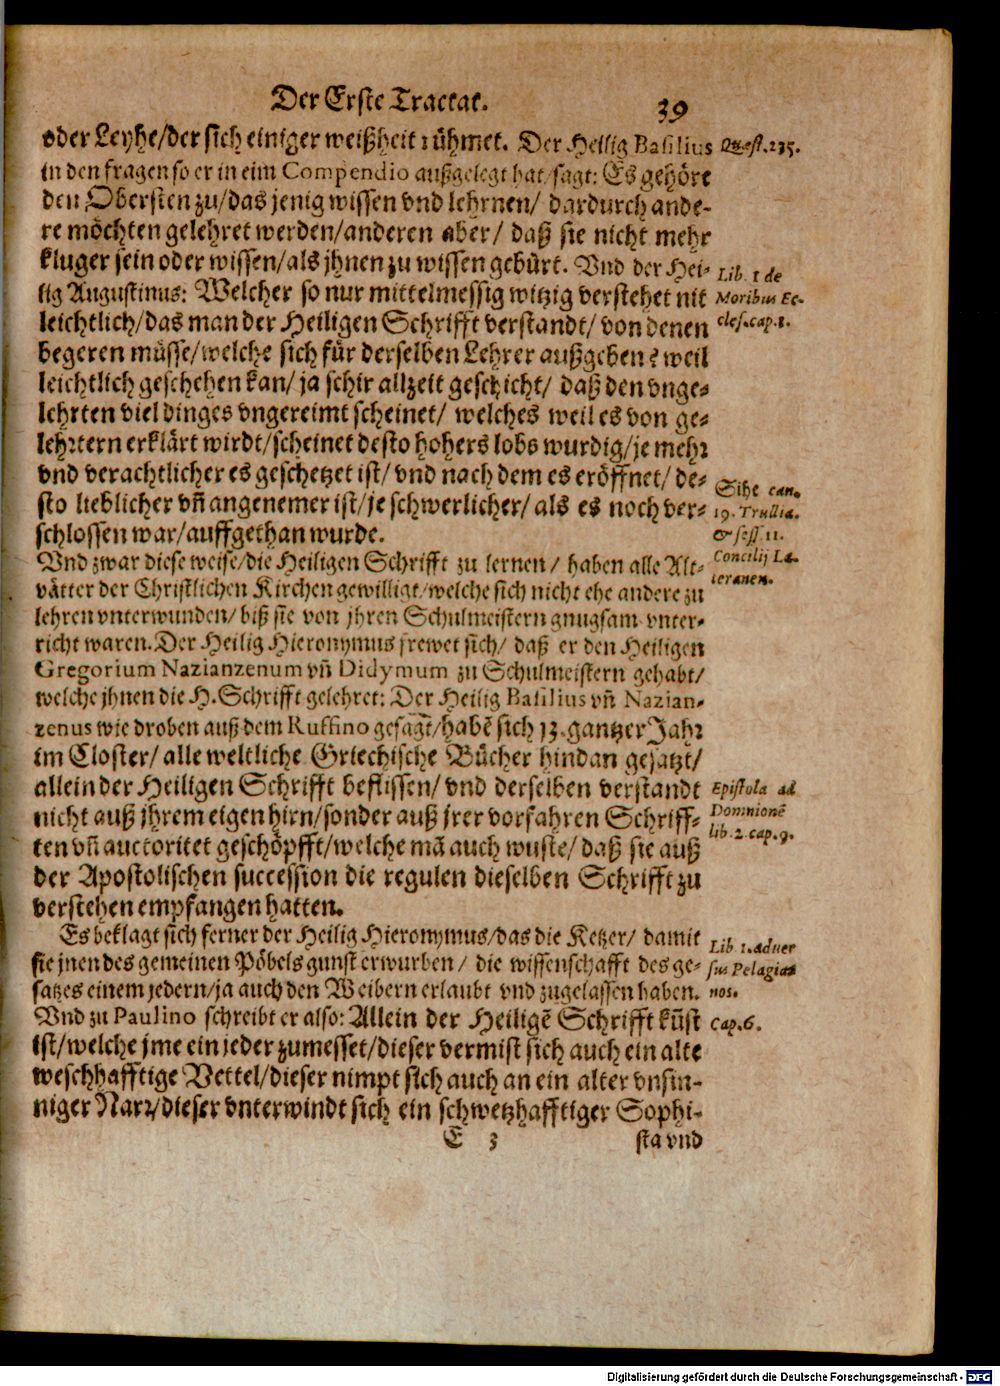 Der Erste Tractat. 39
oder Leyhe/der sich einiger weißheit rühmet. Der Heilig Basilius
in den fragen so er in eim Compendio außgelegt hat/sagt: Es gehöre
den Obersten zu/das jenig wissen vnd lehrnen/ dardurch ande-
re möchten gelehret werden/anderen aber/ daß sie nicht mehr
kluger sein oder wissen/als jhnen zu wissen gebürt. Vnd der Hei-
lig Augustinus: Welcher so nur mittelmessig witzig verstehet nit
leichtlich/das man der Heiligen Schrifft verstandt/ von denen
begeren müsse/welche sich für derselben Lehrer außgeben? weil
leichtlich geschehen kan/ ja schir allzeit geschicht/ daß den vnge-
lehrten viel dinges vngereimt scheinet/ welches weil es von ge-
lehrtern erklärt wirdt/scheinet desto hohers lobs wurdig/je mehr
vnd verachtlicher es geschetzet ist/ vnd nach dem es eröffnet/ de-
sto lieblicher vñ angenemer ist/je schwerlicher/ als es noch ver-
schlossen war/auffgethan wurde.
Vnd zwar diese weise/die Heiligen Schrifft zu lernen/ haben alle Alt-
vätter der Christlichen Kirchen gewilligt/welche sich nicht ehe andere zu
lehren vnterwunden/ biß sie von jhren Schulmeistern gnugsam vnter-
richt waren. Der Heilig Hieronymus frewet sich/ daß er den Heiligen
Gregorium Nazianzenum vñ Didymum zu Schulmeistern gehabt/
welche jhnen die H. Schrifft gelehret: Der Heilig Basilius vñ Nazian-
zenus wie droben auß dem Ruffino gesagt/habē sich 13. gantzer Jahr
im Closter/ alle weltliche Griechische Bücher hindan gesatzt/
allein der Heiligen Schrifft beflissen/ vnd derselben verstandt
nicht auß jhrem eigen hirn/sonder auß jrer vorfahren Schriff-
ten vñ auctoritet geschöpfft/welche mā auch wuste/ daß sie auß
der Apostolischen succession die regulen dieselben Schrifft zu
verstehen empfangen hatten.
Es beklagt sich ferner der Heilig Hieronymus/das die Ketzer/ damit
sie jnen des gemeinen Pöbels gunst erwurben/ die wissenschafft des ge-
satzes einem jedern/ja auch den Weibern erlaubt vnd zugelassen haben.
Vnd zu Paulino schreibt er also: Allein der Heiligē Schrifft kūst
ist/welche jme ein jeder zumesset/dieser vermist sich auch ein alte
weschhafftige Vettel/dieser nimpt sich auch an ein alter vnsin-
niger Narr/dieser vnterwindt sich ein schwetzhafftiger Sophi-
E 3 sta vnd
Quest. 235.
Lib. 1 de
Moribus Ec-
cles. cap. 1.
Sihe can.
19. Trullia.
& sess. 11.
Concilij La-
teranen.
Epistola ad
Domnionē
lib. 2. cap. 9.
Lib. 1. aduer
sus Pelagia
nos.
Cap. 6.
Digitalisierung gefördert durch die Deutsche Forschungsgemeinschaft - DFG